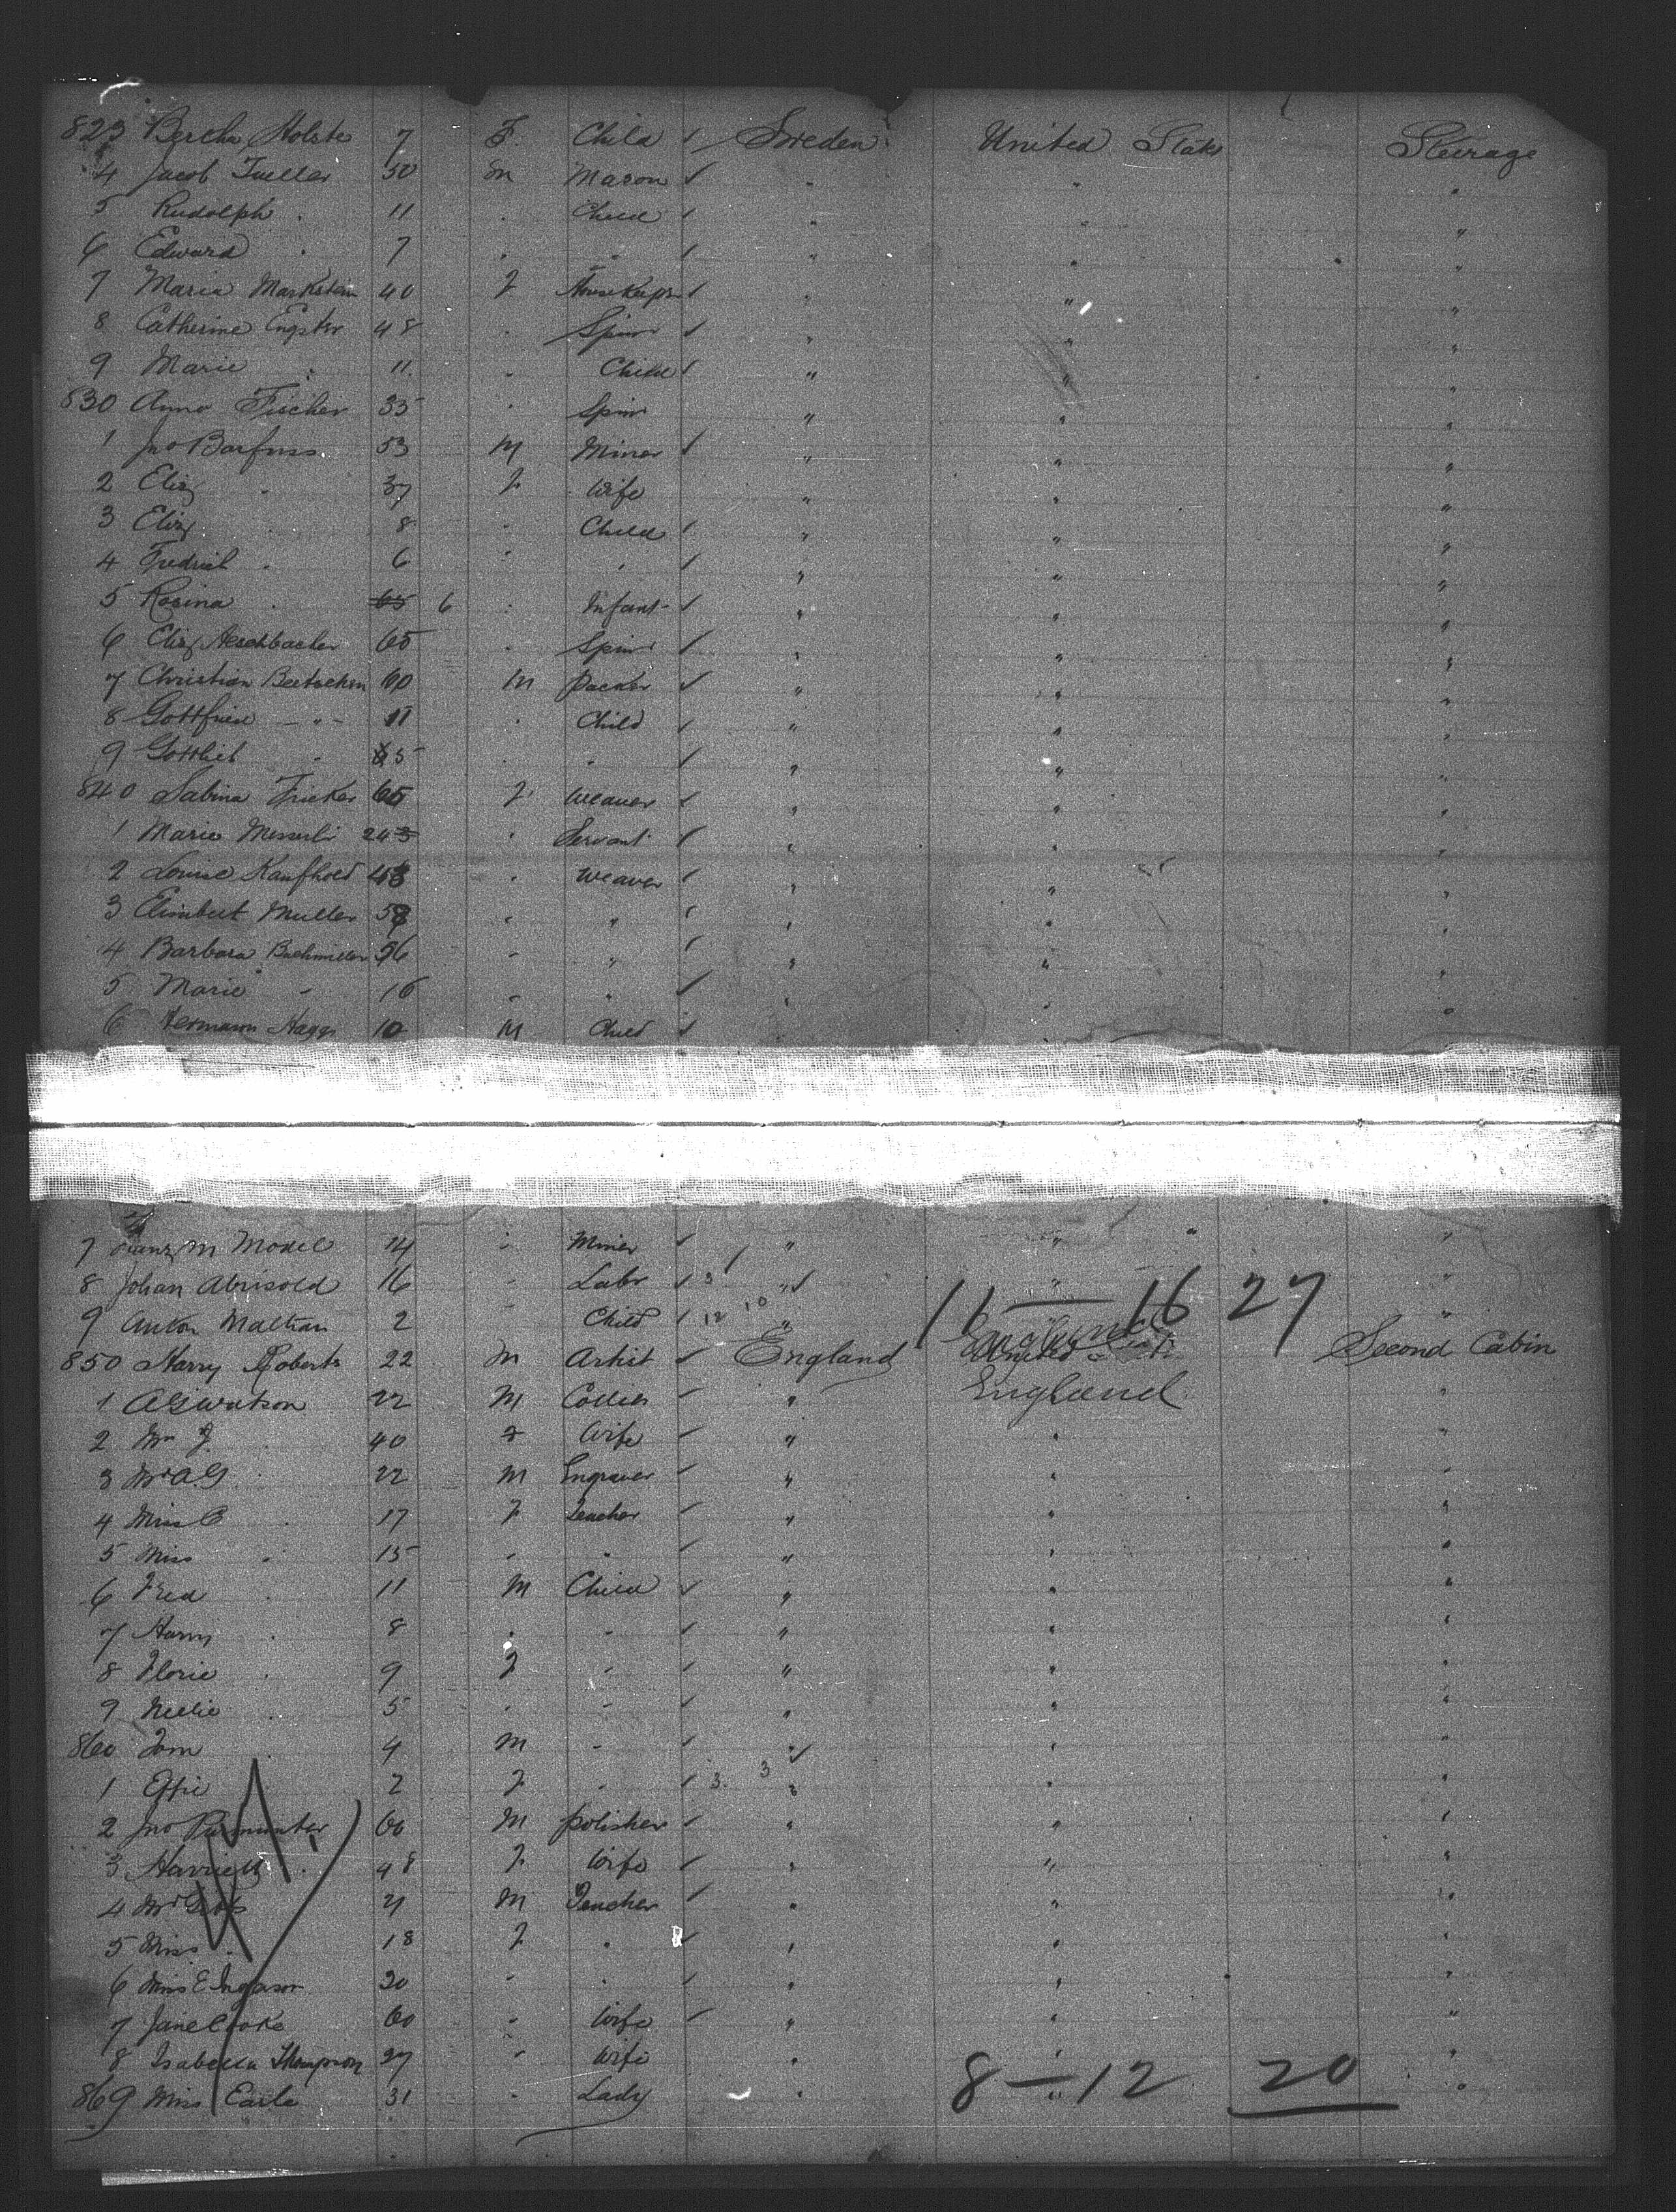 823 Bertha Holste 7 F. Child / Sweden United States Steerage
4 Jacob Tueller 50 M Mason ✓ " " "
5 Rudolph " 11 " Child / " " "
6 Edward " 7 " " / " " "
7 Maria Markstein 40 F Housekeepr / " " "
8 Catherine Engster 48 " Spinr ✓ " " "
9 Marie " 11. " Child / " " "
830 Anna Fischer 35 " Spinr " " "
1 Jno Barfuss 53 M Miner / " " "
2 Eliz " 37 F Wife " " "
3 Eliz " 8 " Child / " " "
4 Fredrich " 6 " " / " " "
5 Rosina " 65 6 " Infant / " " "
6 Eliz Aeschbacher 65 " Spinr / " " "
7 Christian Beetschen 60 M Packer ✓ " " "
8 Gottfried " 11 " Child / " " "
9 Gottlieb " 5 " " / " " "
840 Sabina Fricker 65 F Weaver / " " "
1 Marie Messerli 24 3 " Servant / " " "
2 Louise Kaufhold 43 " Weaver / " " "
3 Elimbert Muller 58 " " / " " "
4 Barbara 56 " " / " " "
5 Marie " 16 " " / " " "
6 Hermann Haggr 10 M Child / " " "
7 M Model 14 " Miner / " " " "
8 Johan 16 " Labr / 3 / " ✓ " "
11 — 16 27
9 Anton 2 " Child / 12 10 " "
850 Harry Roberts 22 M Artist ✓ England England United Second Cabin
1 A G Watson 22 M ✓ " England "
2 Mrs J. " 40 F Wife ✓ " " "
3 Mr A G. " 22 M Engraver ✓ " " "
4 Miss C " 17 F Teacher ✓ " " "
5 Miss " 15 " " ✓ " " "
6 Fred " 11 M Child ✓ " " "
7 Harry " 8 " " ✓ " " "
8 Florie " 9 F " ✓ " " "
9 Nellie " 5 " " ✓ " " "
860 Tom " 4 M " ✓ " ✓ " "
1 Effie " 2 F " ✓ 3. 3 " " "
2 Jno 60 M Polisher ✓ " " "
3 Harriett " 48 F Wife ✓ " " "
4 Mr 21 M Teacher ✓ " " "
5 Miss " 18 F " ✓ " " "
6 Miss E 20 " " / " " "
7 Jane Cooke 60 " Wife ✓ " " "
8 Isabella Thompson 27 " Wife " " "
869 Miss Earle 31 " Lady " " "
8 — 12 20